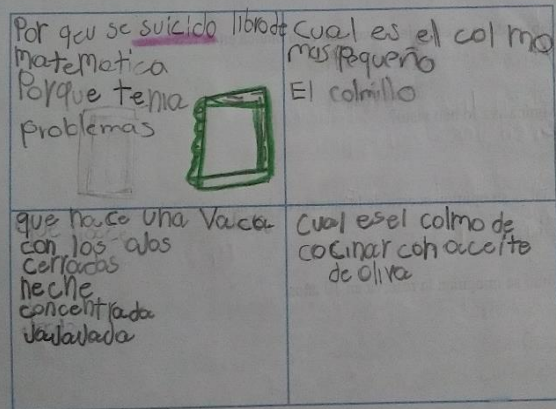 Por qeu se suicido libro de
matematica
Porque tenia
problemas
cual es el colmo
mas pequeño
El colmillo
que hace una vaca
con los ojos
cerrados
heche
concentrada
Javavada
cual es el colmo de
cocinar con acceite
de oliva